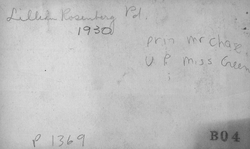 Lillian Rosenberg Pd.
1930
prin purchase
V P Miss Green
P 1369
B04